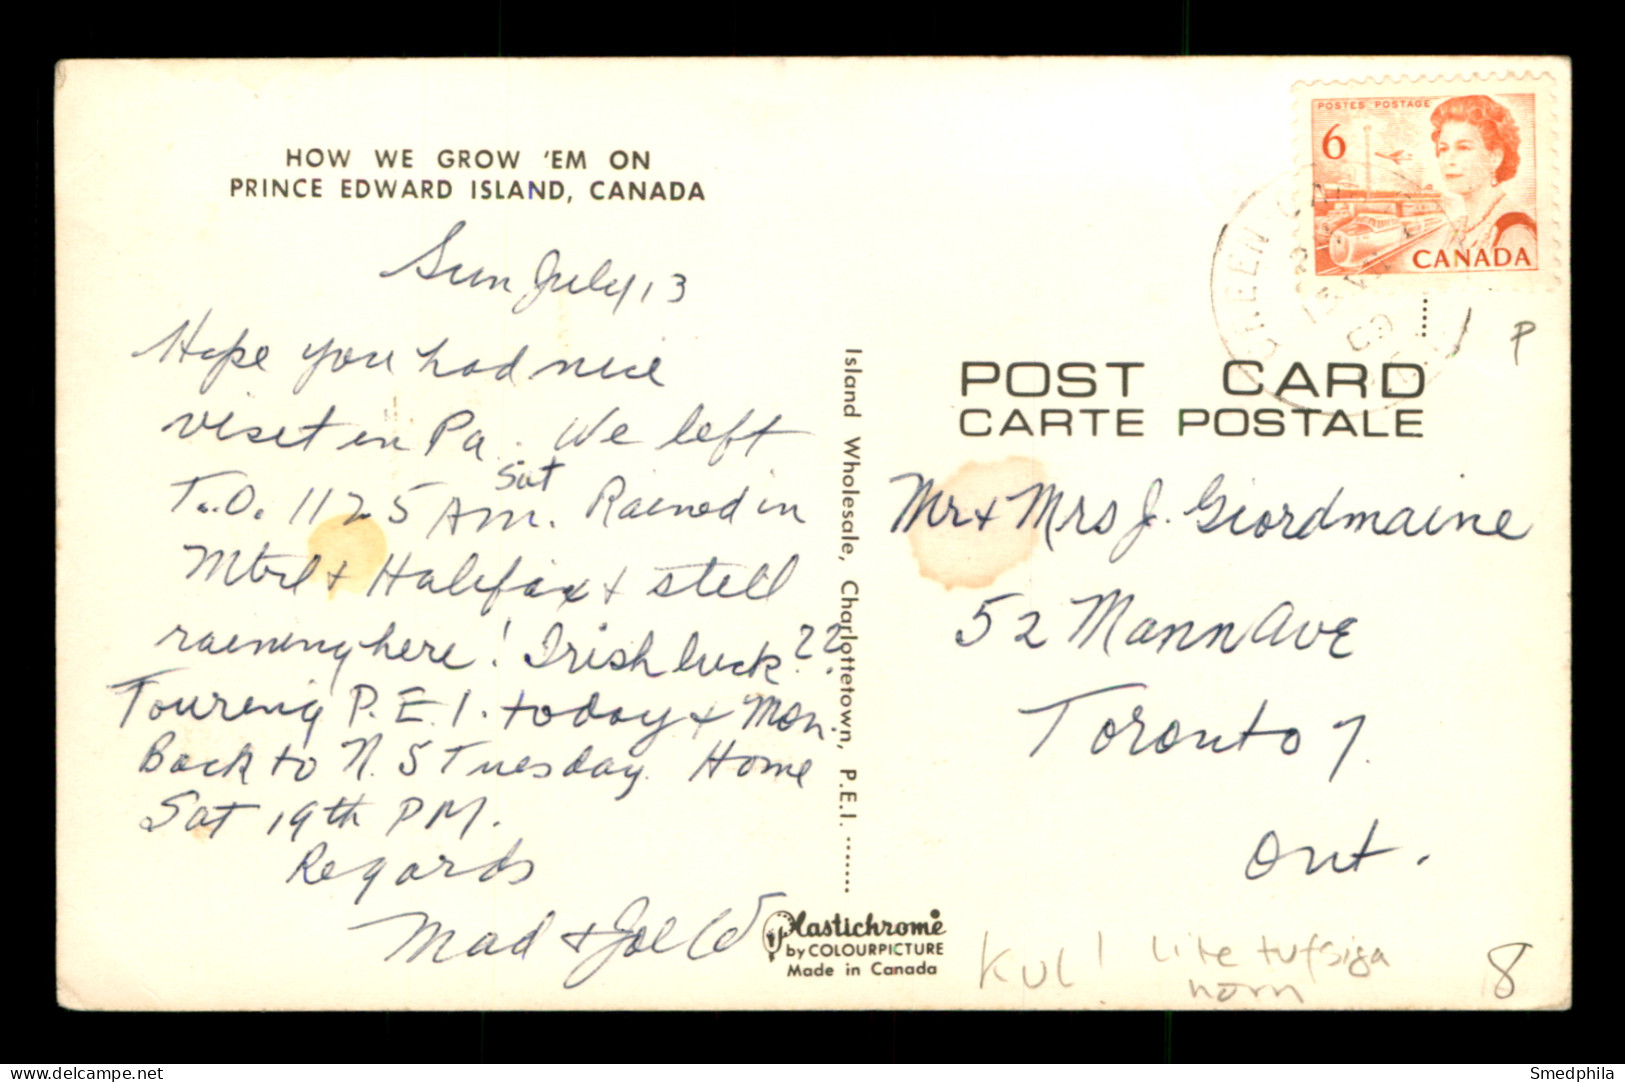 HOW WE GROW 'EM ON
PRINCE EDWARD ISLAND, CANADA
Sun July 13
Hope you had nice
visit in Pa. We left
T.O. 1125 AM. Sat Rained in
Mtrl + Halifax + still
raining here! Irish luck??
Touring P.E.I. today + Mon.
Back to N.S Tuesday. Home
Sat 19th PM.
Regards
Mad + Joe
Island Wholesale, Charlottetown, P.E.I.
Plastichrome
by COLOURPICTURE
Made in Canada
POSTES POSTAGE
6
CANADA
GREEN
69
P
POST CARD
CARTE POSTALE
Mr + Mrs J. Giordmaine
52 Mann Ave
Toronto 7.
Ont.
Kul! Lite tufsiga
horn
8
www.delcampe.net
Smedphila